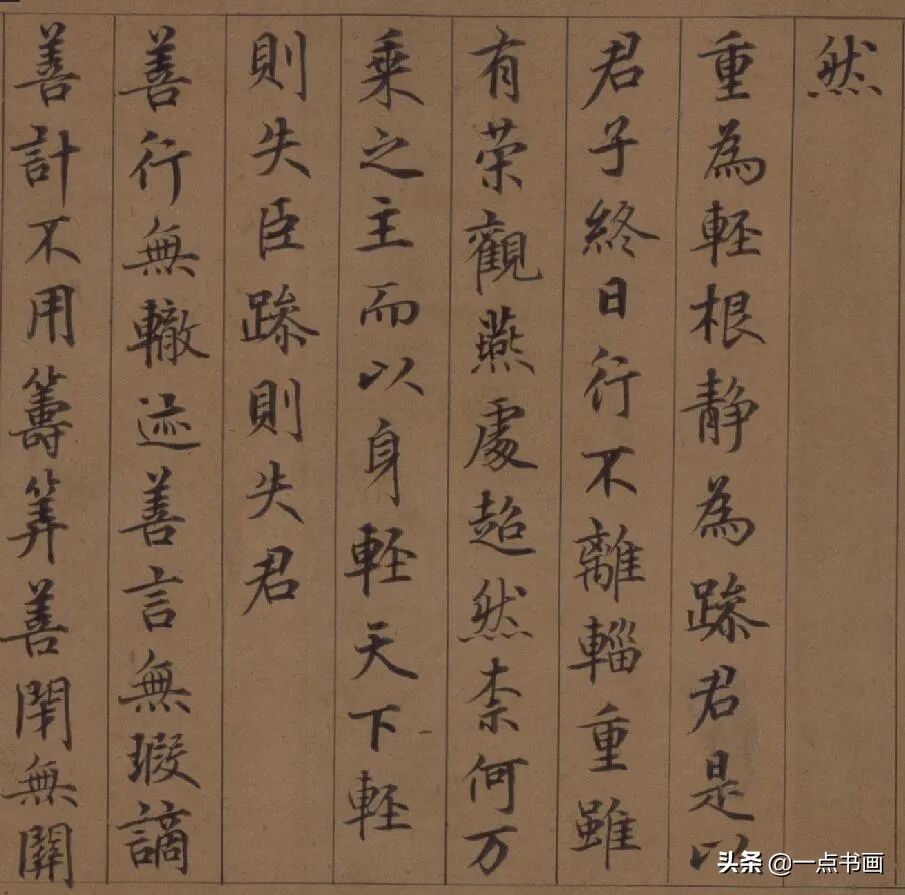 然
重為輕根静為躁君是以
君子終日行不離輜重雖
有荣觀燕處超然柰何万
乘之主而以身輕天下輕
則失臣躁則失君
善行無轍迹善言無瑕謫
善計不用籌筭善閉無關
头条 @一点书画